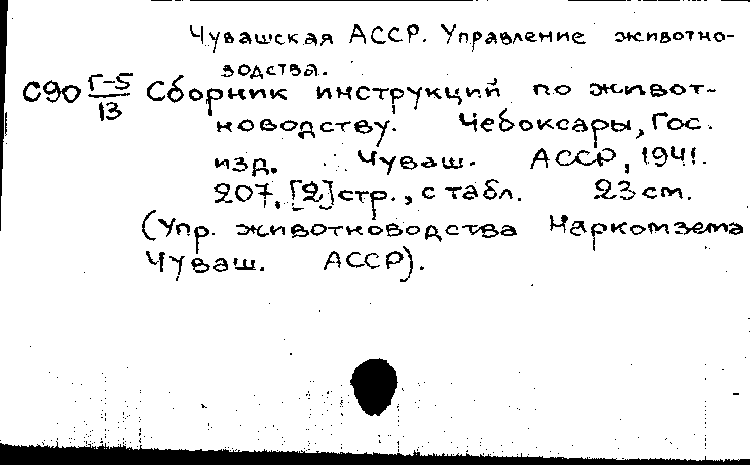 Чувашская АССР. Управление животно-
водства.
С90 Г-5/13 Сборник инструкций по живот-
новодству. Чебоксары, Гос.
изд. Чуваш. АССР, 1941.
207, [2] стр., с табл. 23 см.
(Упр. животноводства Наркомзема
Чуваш. АССР).